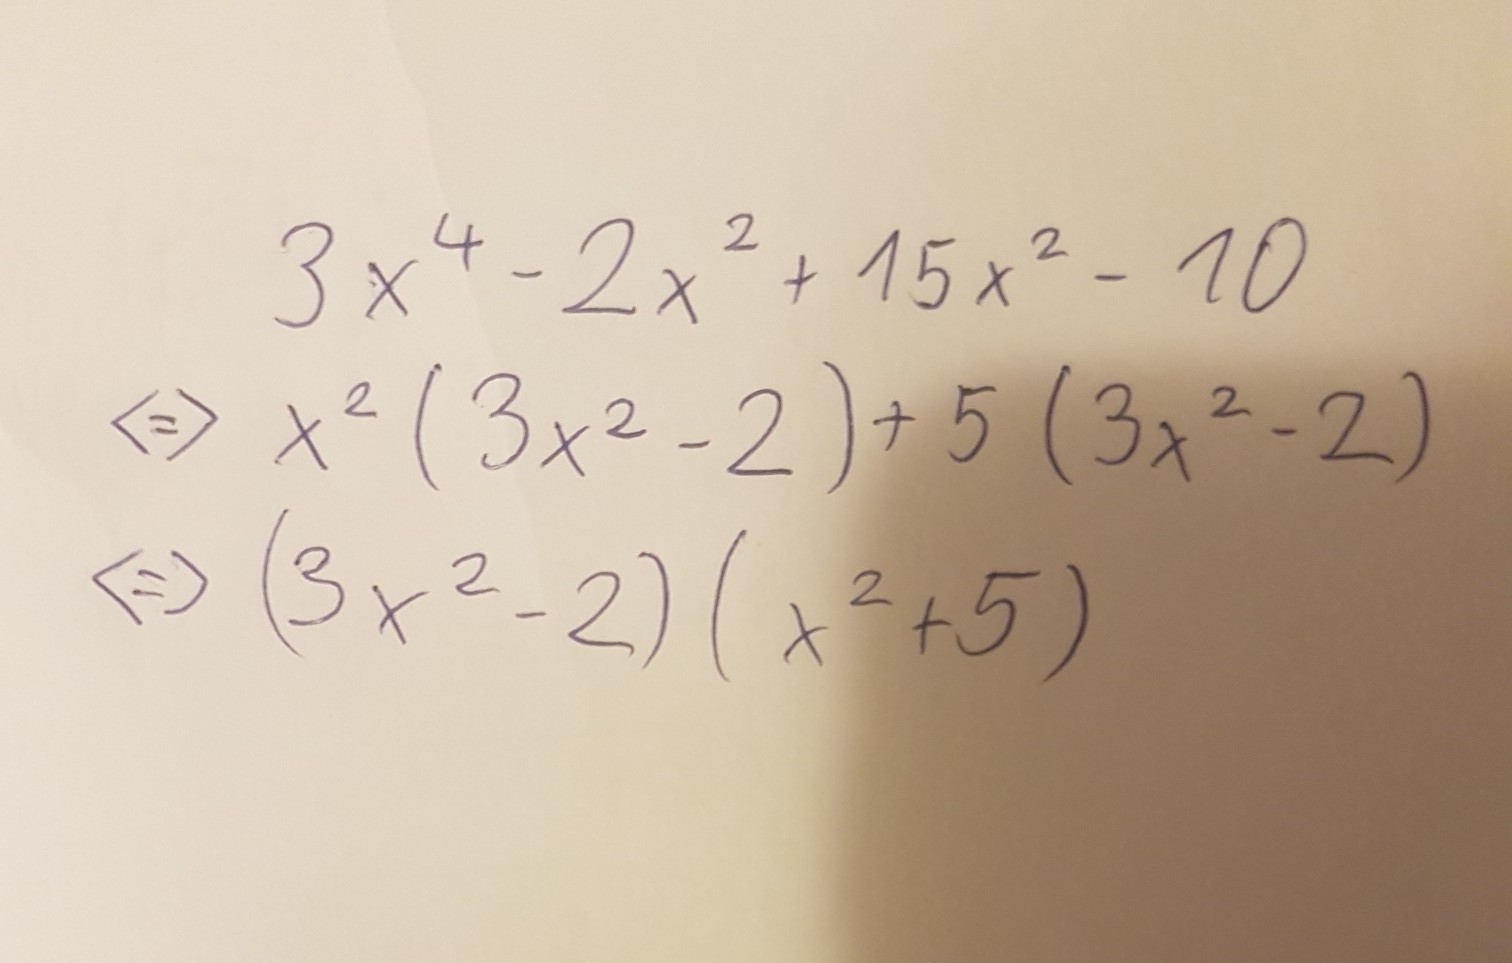 3x⁴ - 2x² + 15x² - 10
<=> x² (3x² - 2) + 5 (3x² - 2)
<=> (3x² - 2) (x² + 5)